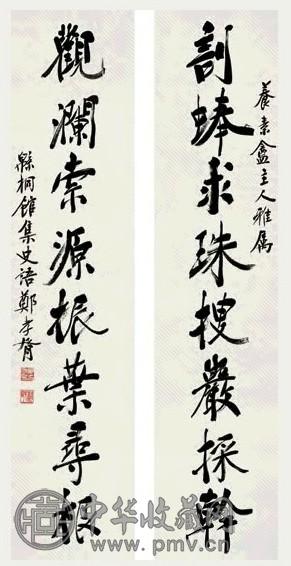 養素盦主人雅屬
剖蚌求珠搜巖採幹
觀瀾索源振葉尋根
緜桐館集史語鄭孝胥
中华收藏网
www.pmv.cn